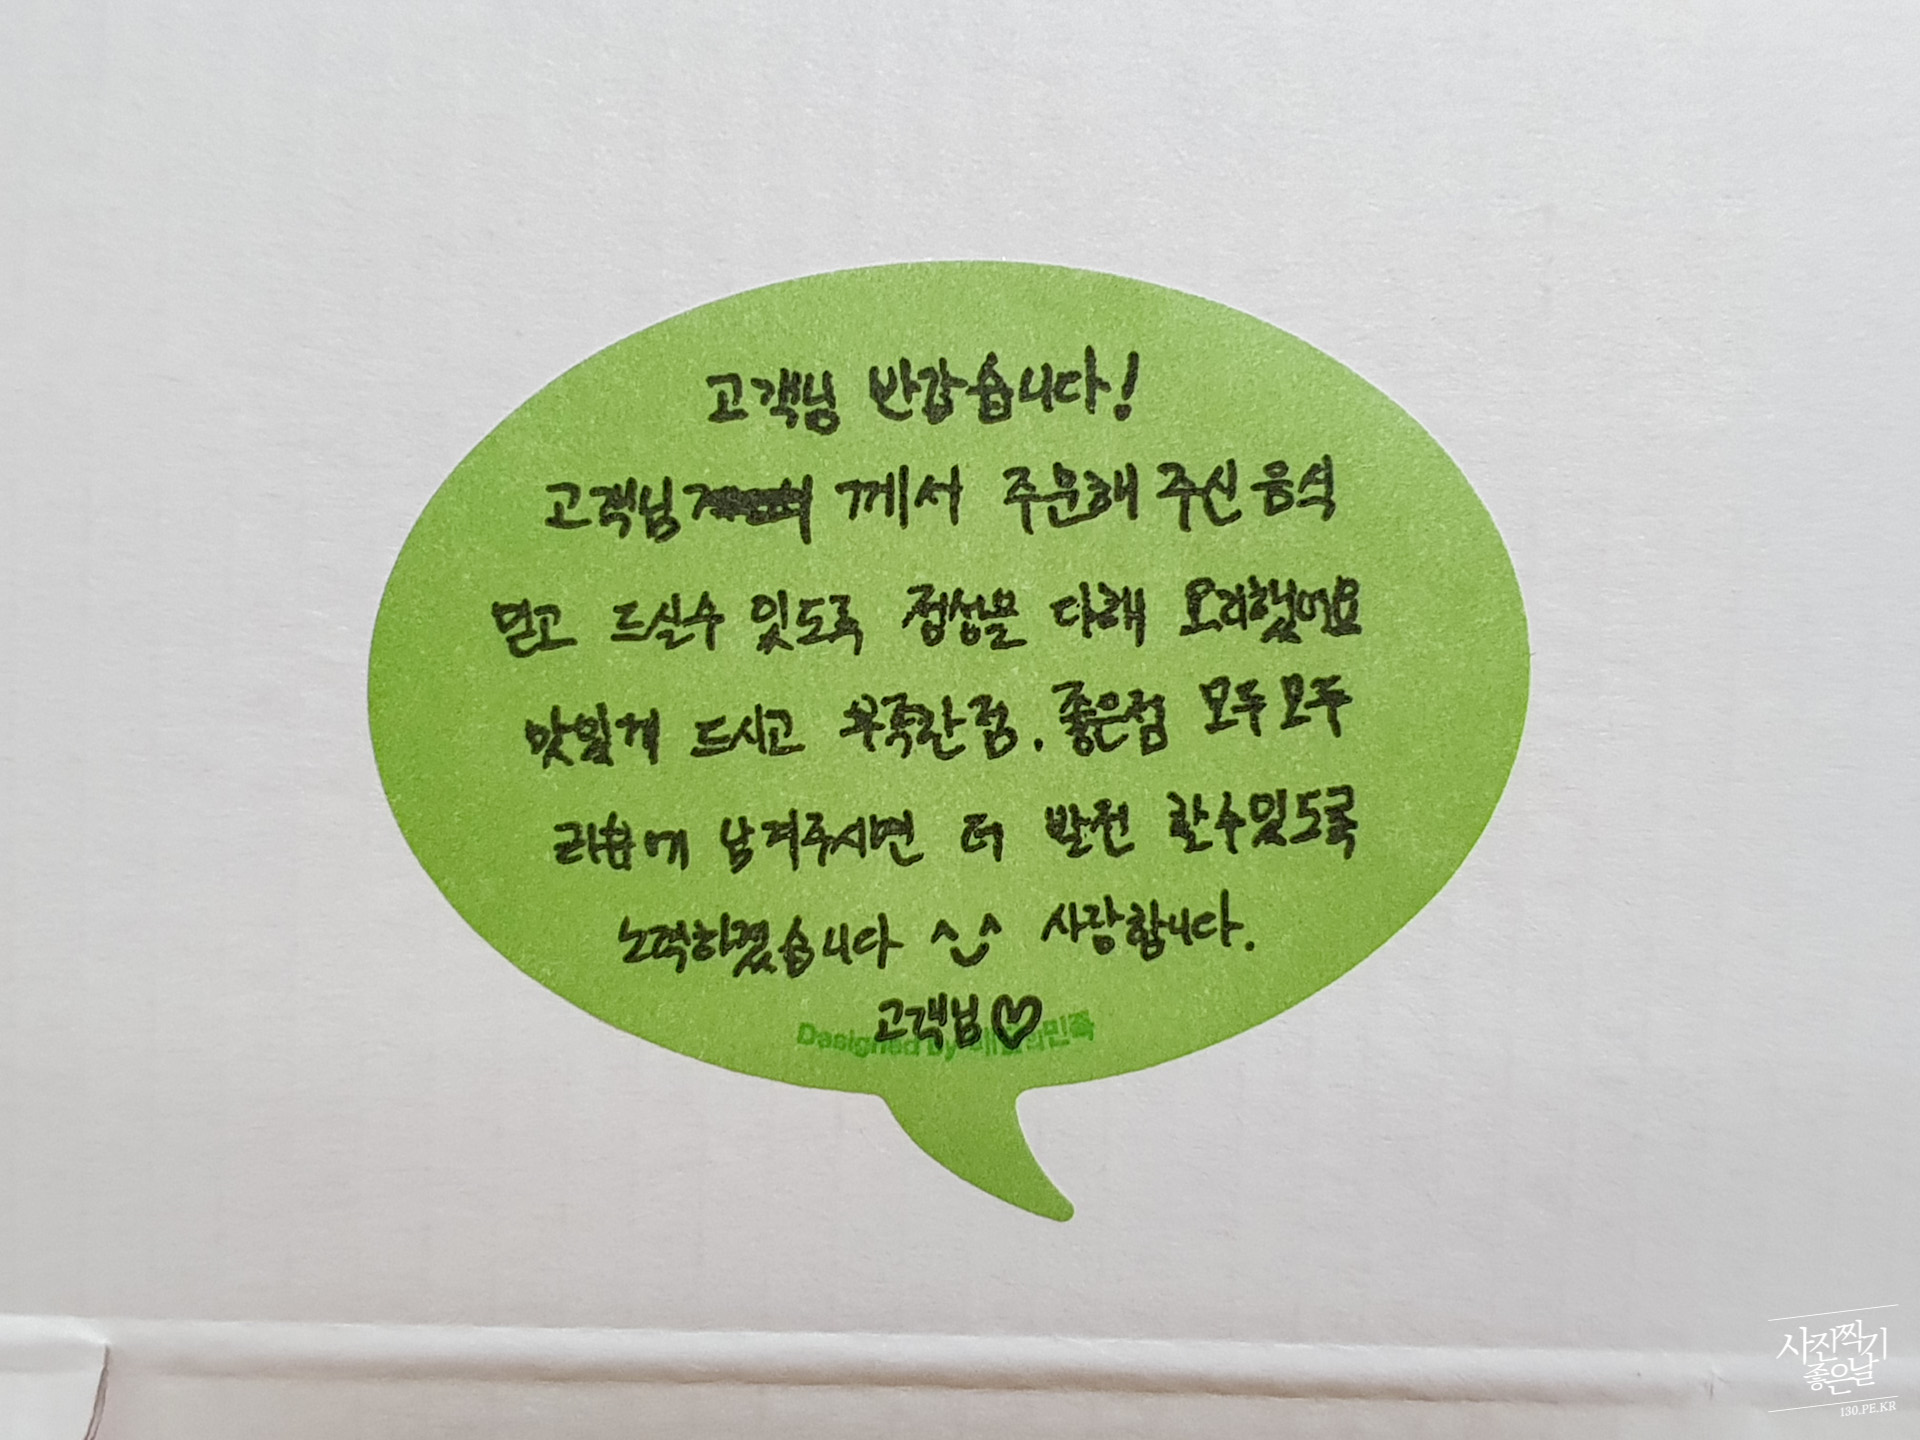 고객님 반갑습니다!
고객님 께서 주문해 주신 음식
믿고 드실수 있도록 정성을 다해 요리했어요
맛있게 드시고 부족한 점. 좋은점 모두모두
리뷰에 남겨주시면 더 발전 할수있도록
노력하겠습니다 ^‿^ 사랑합니다.
고객님♡
Designed by 배달의민족
사진찍기
좋은날
130.PE.KR